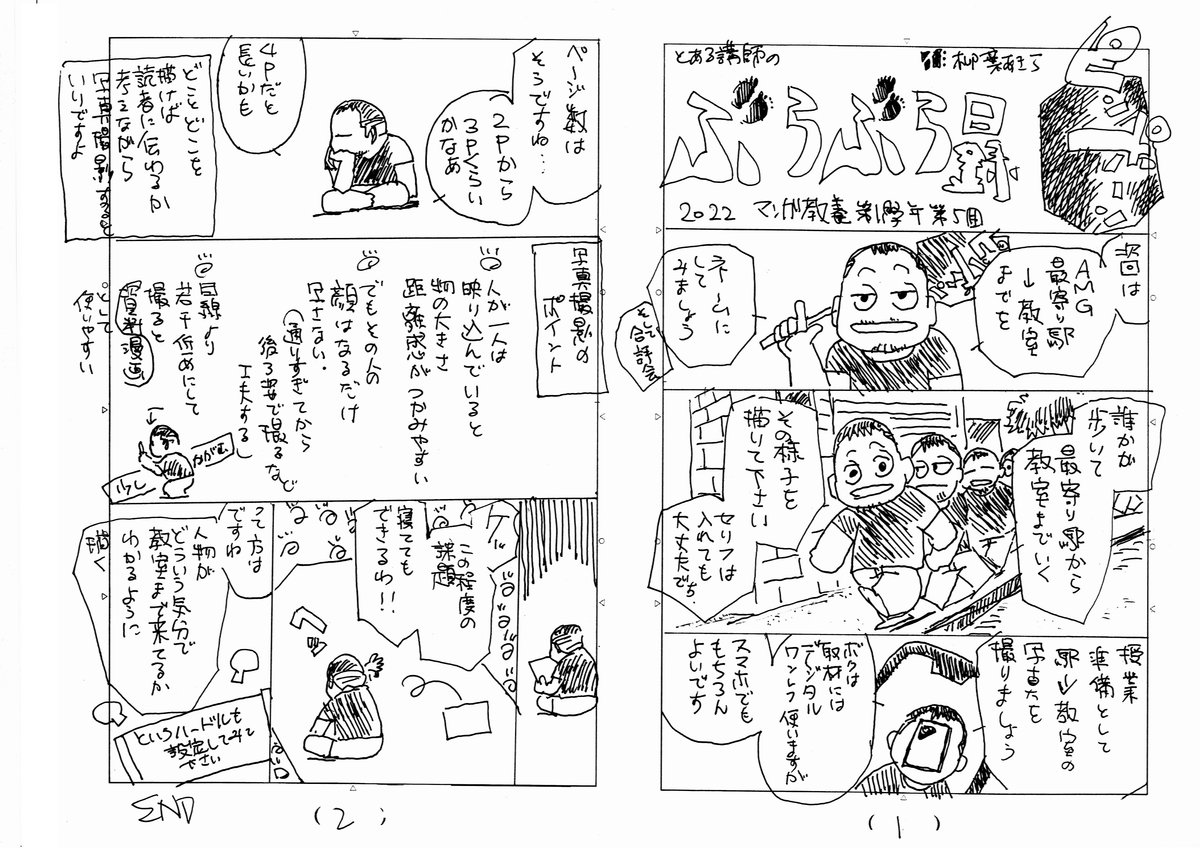 とある講師の
ぶらぶら
2022 マンガ教室 第1学年 第5回
今回は
AMG
最寄り駅
↓教室
までを
ネームに
して
みましょう
そして
合評会
誰かが
歩いて
最寄り駅から
教室までいく
その様子を
描いて下さい
セリフは
入れても
大丈夫でち
授業
準備として
駅→教室の
写真を
撮りましょう
ボクは
取材には
デジタル
ワンレフ使いますが
スマホでも
もちろん
よいです
(1)
ページ数は
そうですね…
2Pから
3Pくらい
かなあ
4Pだと
長いかも
どことどこを
描けば
読者に伝わるか
考えながら
写真撮影すると
いいですよ
写真撮影の
ポイント
人が一人は
映り込んでいると
物の大きさ
距離感がつかみやすい
でもその人の
顔はなるだけ
写さない・
(通りすぎてから
後ろ姿で撮るなど
工夫する)
目線より
若干低めにして
撮ると
背景漫画
として
使いやすい
少し
かがむ
この程度の
課題
寝てても
できるわ!!
って方は
ですね
人物が
どういう気分で
教室まで来てるか
わかるように
描く
というハードルも
設定してみて
下さい
END
(2)